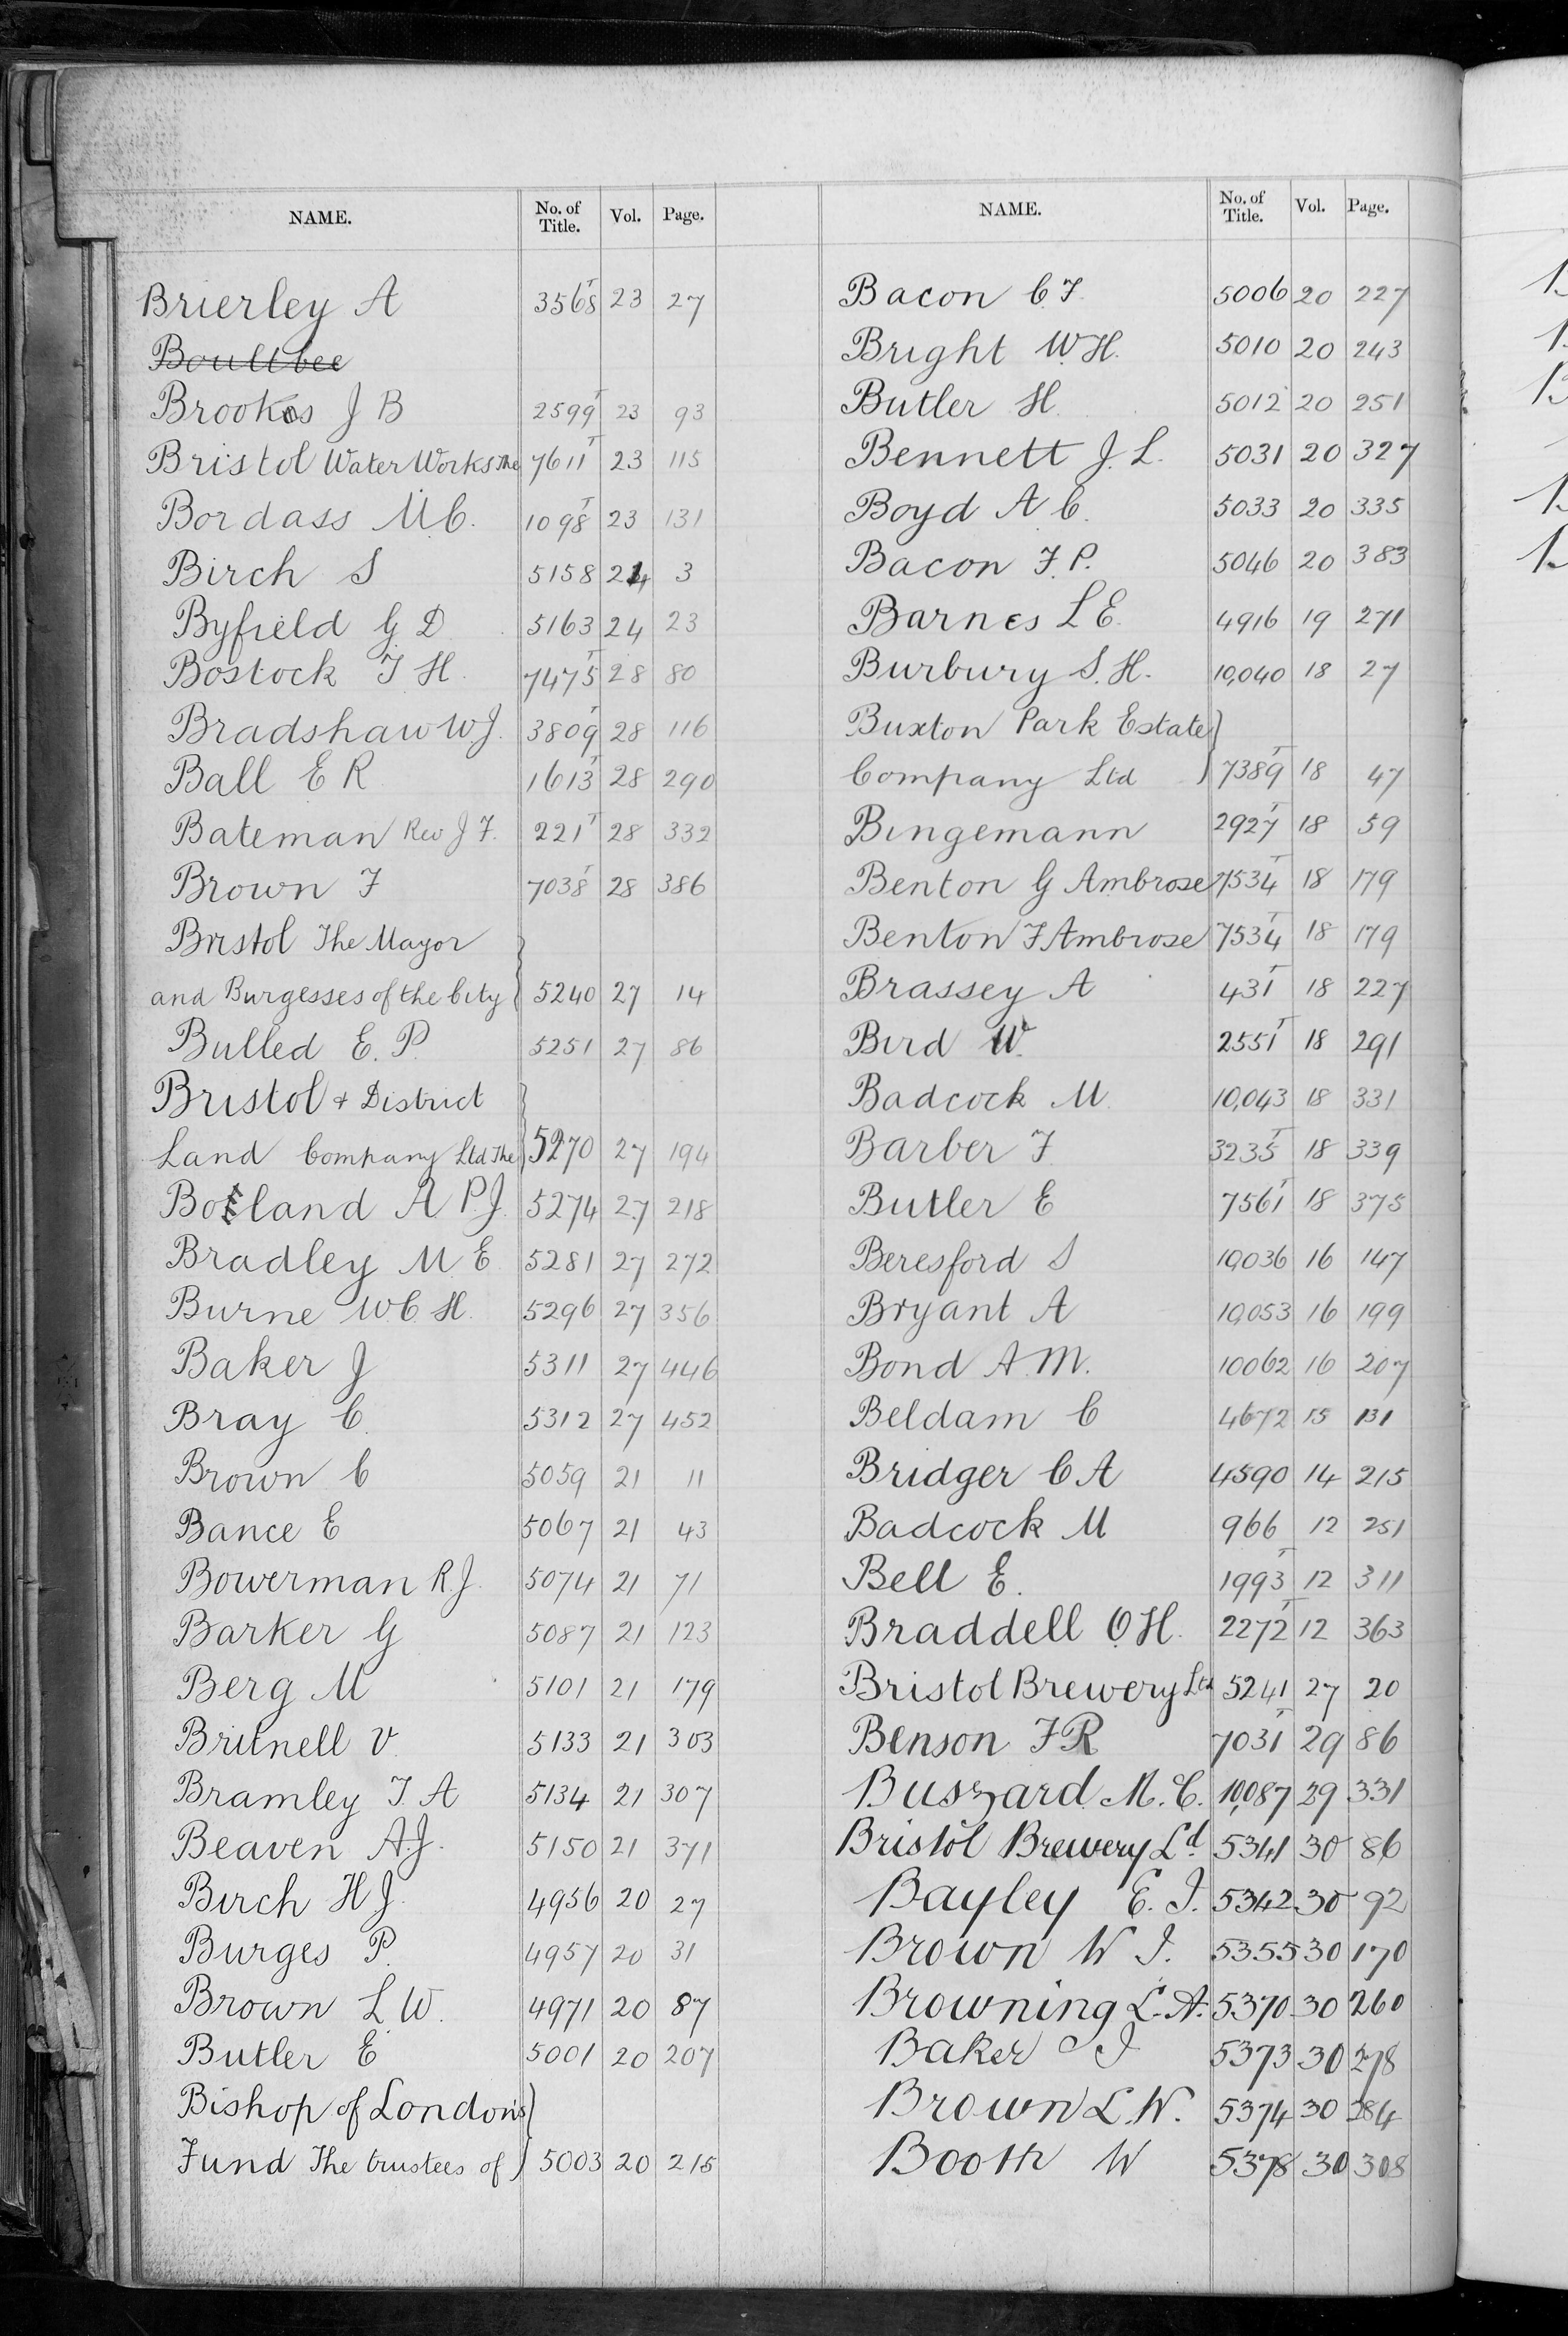 NAME. No. of Title. Vol. Page.
Brierley A 3568 T 23 27
Boultbee
Brookes J B 2599 T 23 93
Bristol Water Works The 7611 T 23 115
Bordass M C. 1098 T 23 131
Birch S 5158 24 3
Byfield G D 5163 24 23
Bostock T H. 7475 T 28 80
Bradshaw W J. 3809 T 28 116
Ball E R 1613 T 28 290
Bateman Rev J F. 221 T 28 332
Brown F 7038 T 28 386
Bristol The Mayor
and Burgesses of the City 5240 27 14
Bulled E. P. 5251 27 86
Bristol & District
Land Company Ltd The 5270 27 194
land A P. J. 5274 27 218
Bradley M E 5281 27 272
Burne W C H. 5296 27 356
Baker J 5311 27 446
Bray C. 5312 27 452
Brown C 5059 21 11
Bance E 5067 21 43
Bowerman R. J. 5074 21 71
Barker G 5087 21 123
Berg M 5101 21 179
Britnell V. 5133 21 303
Bramley T. A 5134 21 307
Beaven A. J. 5150 21 371
Birch H J. 4956 20 27
Burges P. 4957 20 31
Brown L W. 4971 20 87
Butler E 5001 20 207
Bishop of London's
Fund The trustees of 5003 20 215
NAME. No. of Title. Vol. Page.
Bacon C. F. 5006 20 227
Bright W. H. 5010 20 243
Butler H. 5012 20 251
Bennett J. L. 5031 20 327
Boyd A C. 5033 20 335
Bacon F. P. 5046 20 383
Barnes L E. 4916 19 271
Burbury S. H. 10,040 18 27
Buxton Park Estate
Company Ltd 7389 T 18 47
Bingemann 2927 T 18 59
Benton G Ambrose 7534 T 18 179
Benton F Ambrose 7534 T 18 179
Brassey A 431 T 18 227
Bird W. 2551 T 18 291
Badcock M. 10,043 18 331
Barber F 3235 T 18 339
Butler E 7561 T 18 375
Beresford S 10,036 16 147
Bryant A 10,053 16 199
Bond A. M. 10062 16 207
Beldam C 4672 15 131
Bridger C A 4590 14 215
Badcock M 966 12 251
Bell E. 1993 T 12 311
Braddell O H. 2272 T 12 363
Bristol Brewery Ltd 5241 27 20
Benson F R 7031 T 29 86
Buszard M. C. 10,087 29 331
Bristol Brewery Ld. 5341 30 86
Bayley E. J. 5342 30 92
Brown W J. 5355 30 170
Browning L. A. 5370 30 260
Baker J 5373 30 278
Brown L. W. 5374 30 284
Booth W 5378 30 308